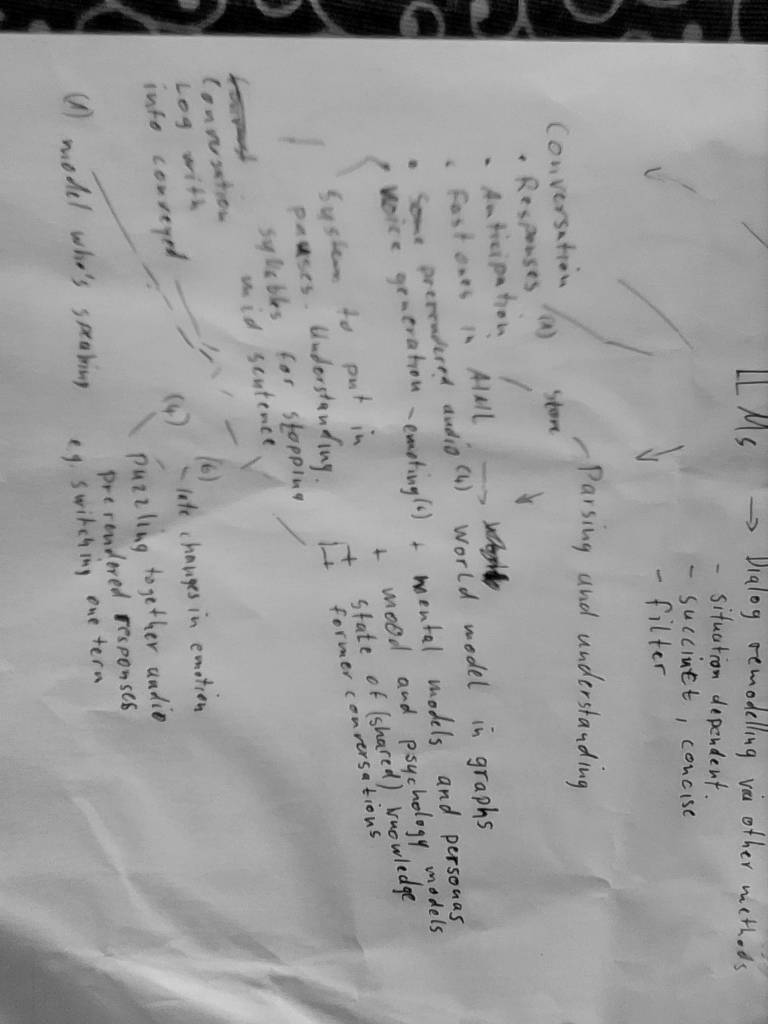 LLMs → Dialog remodelling via other methods
- situation dependent.
- succinct, concise
- filter
Parsing and understanding
store
Conversation
• Responses (1)
• Anticipation
• Fast ones in AIML →
• Some prerendered audio (4)
• Voice generation - emoting (6)
World model in graphs
+ mental models and personas
+ mood and psychology models
+ state of (shared) knowledge
+ former conversations
System to put in
pauses. Understanding.
syllables for stopping
mid sentence
Conversation
Log with
into conveyed
(6)
- late changes in emotion
(4)
puzzling together audio
prerendered responses
e.g. switching one term
(1) model who's speaking